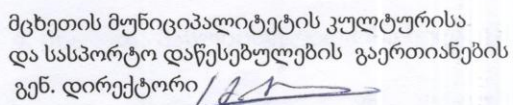 მცხეთის მუნიციპალიტეტის კულტურისა
და სასპორტო დაწესებულების გაერთიანების
გენ. დირექტორი